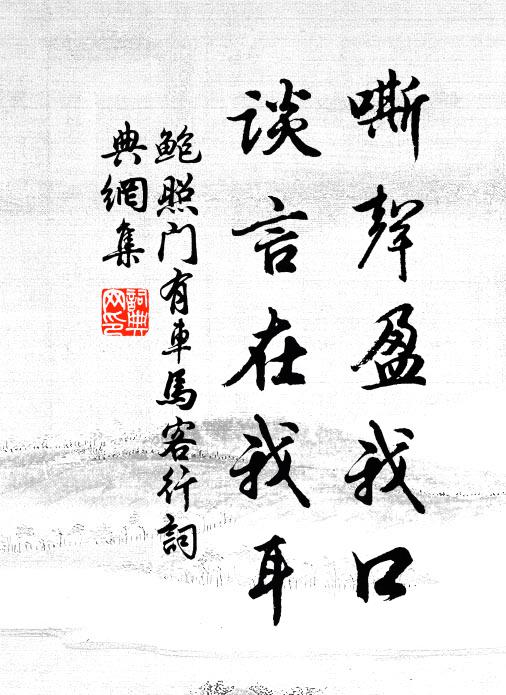 嘶聲盈我口
谈言在我耳
鲍照门有車馬客行詞
典網集
詞典
网印